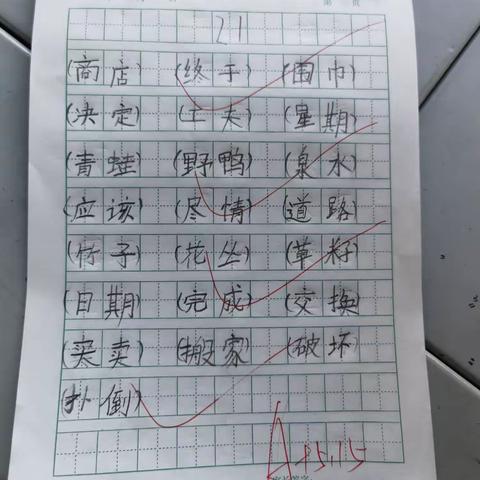 21
(商店) (终于) (围巾)
(决定) (工夫) (星期)
(青蛙) (野鸭) (泉水)
(应该) (尽情) (道路)
(竹子) (花丛) (草籽)
(日期) (完成) (交换)
(买卖) (搬家) (破坏)
(扑倒)